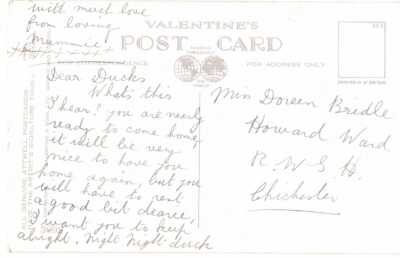 with much love
from loving
Mummie
x x x x x x x x
VALENTINE'S
POST CARD
FOR ADDRESS ONLY
Dear Ducks
What's this
I hear? you are nearly
ready to come home,
it will be very
nice to have you
home again, but you
will have to rest
a good bit dearie,
I want you to keep
alright. Night Night duck
Miss Doreen Bridle
Howard Ward
R. W. S. H.
Chichester
ALL GENUINE ATTWELL POSTCARDS